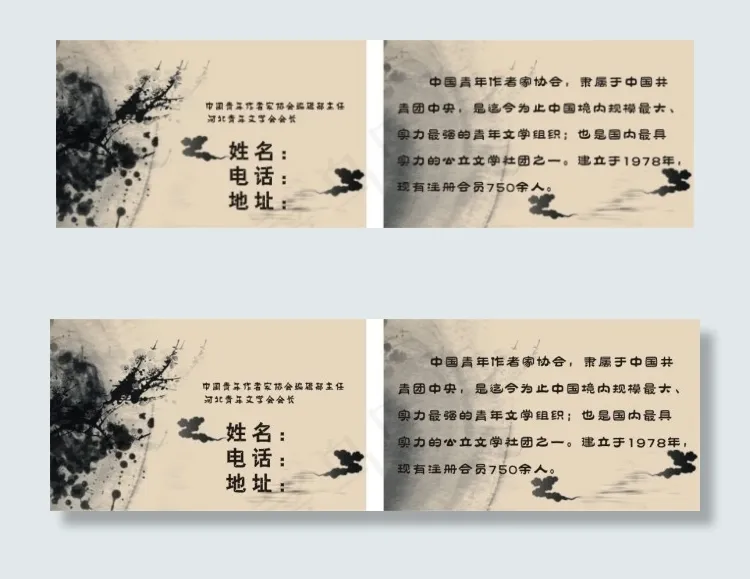 中国青年作者家协会编辑部主任
河北青年文学会会长
姓名：
电话：
地址：
中国青年作者家协会，隶属于中国共
青团中央，是迄今为止中国境内规模最大、
实力最强的青年文学组织；也是国内最具
实力的公立文学社团之一。建立于1978年，
现有注册会员750余人。
中国青年作者家协会编辑部主任
河北青年文学会会长
姓名：
电话：
地址：
中国青年作者家协会，隶属于中国共
青团中央，是迄今为止中国境内规模最大、
实力最强的青年文学组织；也是国内最具
实力的公立文学社团之一。建立于1978年，
现有注册会员750余人。